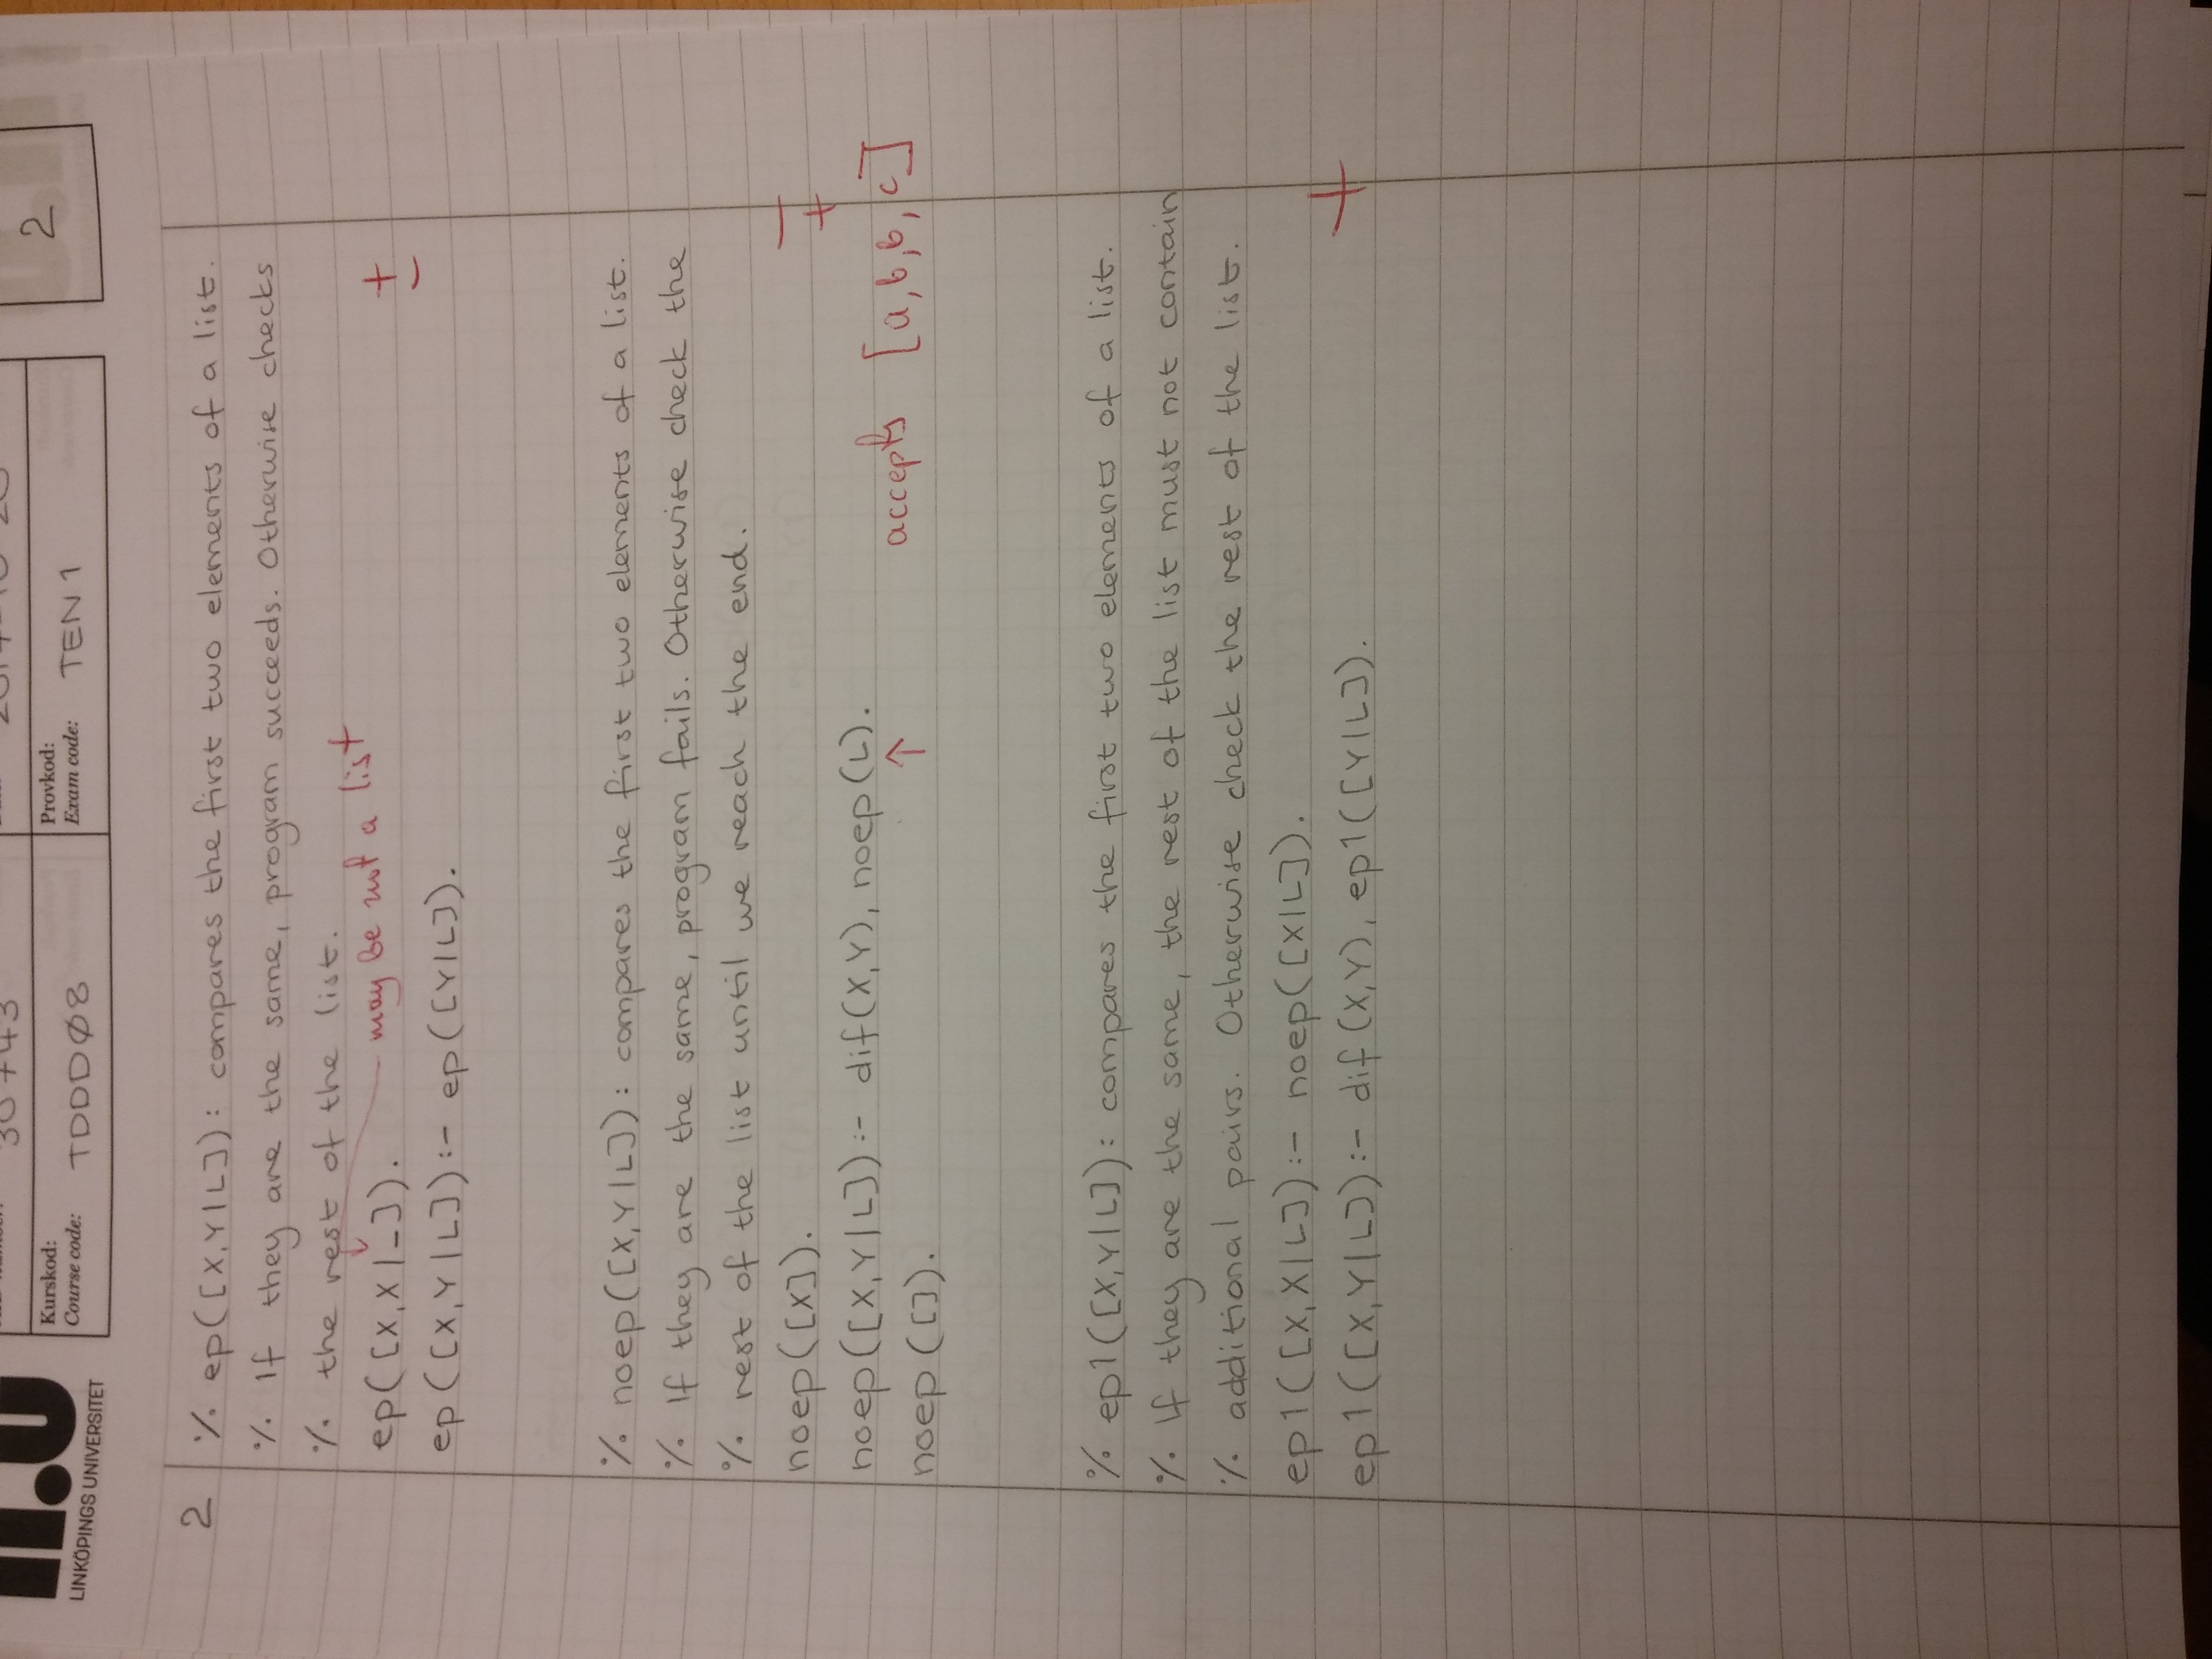 LINKÖPINGS UNIVERSITET
Kurskod:
Course code:
TDDDØ8
Provkod:
Exam code:
TEN 1
2
2
% ep([X,Y|L]): compares the first two elements of a list.
% If they are the same, program succeeds. Otherwise checks
% the rest of the list.
may be not a list
ep([X,X|_]).
+
-
ep([X,Y|L]):- ep([Y|L]).
% noep([X,Y|L]): compares the first two elements of a list.
% If they are the same, program fails. Otherwise check the
% rest of the list until we reach the end.
noep([X]).
-
+
noep([X,Y|L]):- dif(X,Y), noep(L).
↑
accepts [a,b,b,c]
noep([]).
% ep1([X,Y|L]): compares the first two elements of a list.
% If they are the same, the rest of the list must not contain
% additional pairs. Otherwise check the rest of the list.
ep1([X,X|L]):- noep([X|L]).
+
ep1([X,Y|L]):- dif(X,Y), ep1([Y|L]).